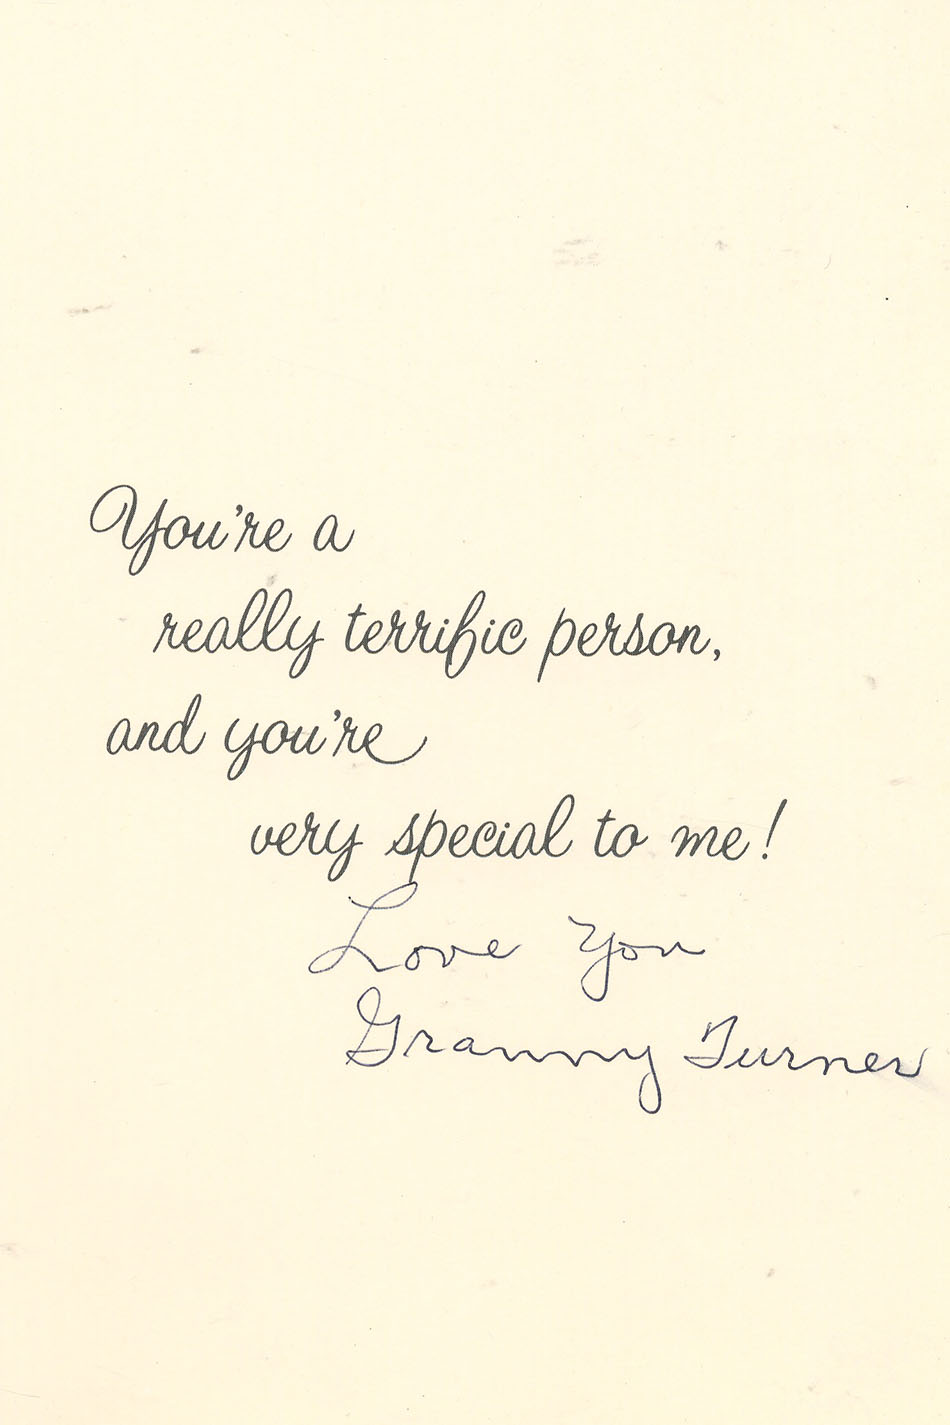 You're a
really terrific person,
and you're
very special to me!
Love You
Granny Turner